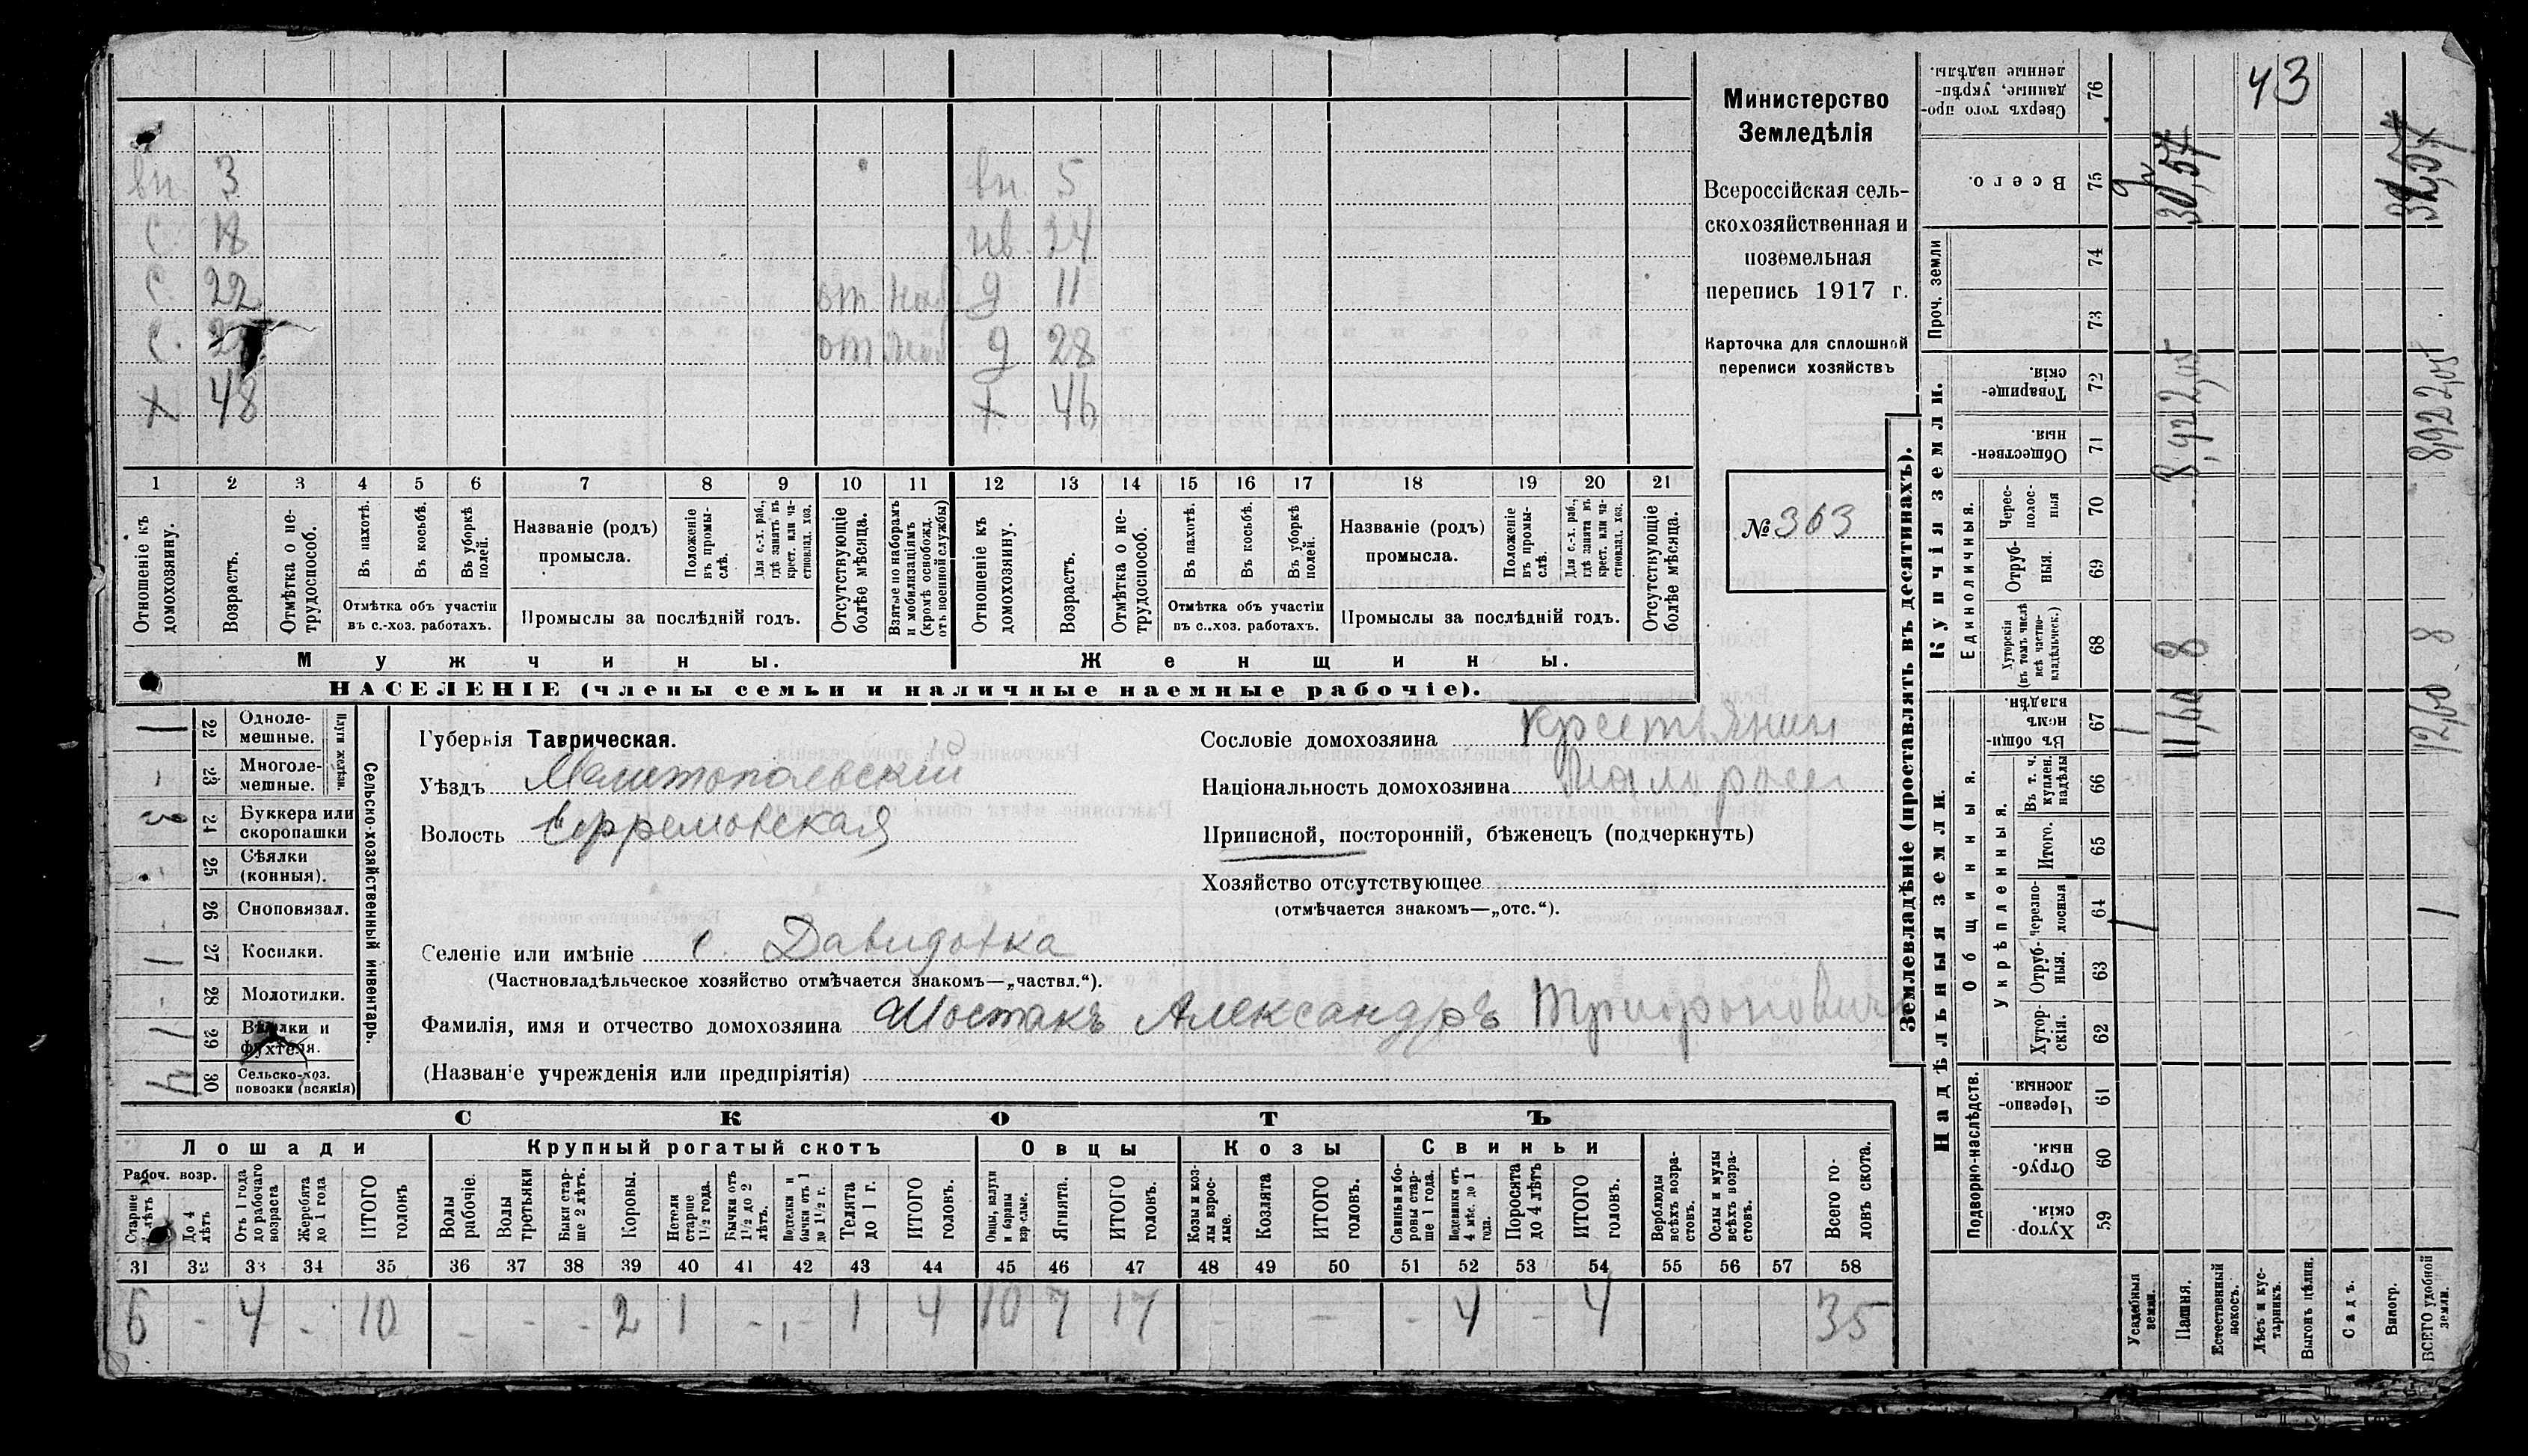 43
Министерство
Земледѣлія
Всероссійская сель-
скохозяйственная и
поземельная
перепись 1917 г.
Карточка для сплошной
переписи хозяйствъ
№ 363
вн. 3 вн. 5
с. 18 нв. 24
с. 22 от д 11
с. от д 28
х 48 х 46
1 2 3 4 5 6 7 8 9 10 11 12 13 14 15 16 17 18 19 20 21
Отношеніе къ домохозяину.
Возрастъ.
Отмѣтка о не-трудоспособ.
Въ пахотѣ.
Въ косьбѣ.
Въ уборкѣ полей.
Отмѣтка объ участіи
въ с.-хоз. работахъ.
Названіе (родъ)
промысла.
Положеніе въ промы-слѣ.
Для с.-х. раб., гдѣ занятъ въ крест. или ча-стновлад. хоз.
Промыслы за послѣдній годъ.
Отсутствующіе болѣе мѣсяца.
Взятые по наборамъ и мобилизаціямъ (кромѣ освобожд. отъ военной службы)
Отношеніе къ домохозяину.
Возрастъ.
Отмѣтка о не-трудоспособ.
Въ пахотѣ.
Въ косьбѣ.
Въ уборкѣ полей.
Отмѣтка объ участіи
въ с..хоз. работахъ.
Названіе (родъ)
промысла.
Положеніе въ промы-слѣ.
Для с.-х. раб., гдѣ занятъ въ крест. или ча-стновлад. хоз.
Промыслы за послѣдній годъ.
Отсутствующіе болѣе мѣсяца.
Мужчины. Женщины.
НАСЕЛЕНІЕ (члены семьи и наличные наемные рабочіе).
Сельско-хозяйственный инвентарь.
Плуги желѣзн.
22 Однолемешные. 1
23 Многолемешные. -
24 Буккера или скоропашки 3
25 Сѣялки (конныя).
26 Сноповязал. -
27 Косилки. 1
28 Молотилки. -
29 Вѣялки и фухтеля. 1
30 Сельско-хоз. повозки (всякія) 4
Губернія Таврическая.
Уѣздъ Мелитопольскій
Волость Ефремовская
Сословіе домохозяина крестьянин
Національность домохозяина малоросс
Приписной, посторонній, бѣженецъ (подчеркнуть)
Хозяйство отсутствующее
(отмѣчается знакомъ—„отс.“).
Селеніе или имѣніе с. Давидовка
(Частновладѣльческое хозяйство отмѣчается знакомъ—„частвл.“).
Фамилія, имя и отчество домохозяина Шостакъ Александръ Трифонович
(Названіе учрежденія или предпріятія)
СКОТЪ
Лошади Крупный рогатый скотъ Овцы Козы Свиньи
Рабоч. возр.
Старше 4 лѣтъ
До 4 лѣтъ
Отъ 1 года до рабочаго возраста
Жеребята до 1 года
ИТОГО головъ
Волы рабочіе.
Волы третьяки
Быки стар-ше 2 лѣтъ.
Коровы.
Нетели старше 1½ года.
Бычки отъ 1½ до 2 лѣтъ.
Подтелки и бычки отъ 1 до 1½ г.
Телята до 1 г.
ИТОГО головъ.
Овцы, валухи и бараны взрослые.
Ягнята.
ИТОГО головъ.
Козы и коз-лы взрос-лые.
Козлята
ИТОГО головъ.
Свиньи и бо-ровы стар-ше 1 года.
Подсвинки отъ 4 мѣс. до 1 года.
Поросята до 4 лѣтъ
ИТОГО головъ.
Верблюды всѣхъ возра-стовъ.
Ослы и мулы всѣхъ возра-стовъ.
Всего го-ловъ скота.
31 32 33 34 35 36 37 38 39 40 41 42 43 44 45 46 47 48 49 50 51 52 53 54 55 56 57 58
6 - 4 - 10 - - - 2 1 - - 1 4 10 7 17 - - - - 4 - 4 35
Землевладѣніе (проставлять въ десятинахъ).
Надѣльныя земли.
Купчія земли.
Проч. земли
Подворно-наслѣдств.
Общинныя.
Укрѣпленныя.
Единоличныя.
59 Хутор-скія.
60 Отруб-ныя.
61 Черезпо-лосныя
62 Хутор-скія.
63 Отруб-ныя.
64 черезпо-лосныя
65 Итого.
66 Въ т. ч. куплен. надѣлы
67 Въ общин-номъ владѣн.
68 Хуторскія (въ томъ числѣ всѣ частно-владѣльческ.)
69 Отруб-ныя.
70 Черес-полос-ныя
71 Обществен-ныя.
72 Товарище-скія.
73
74
75 Всего.
76 Сверхъ того про-данные, укрѣп-ленные надѣлы.
Усадебныя земли.
Пашня. 11,60 8 8,92 2,05 30,57
Естественный покосъ.
Лѣсъ и кус-тарникъ.
Выгонъ цѣлин.
Садъ.
Виногр.
ВСЕГО удобной земли. 1 12,60 8 8,92 2,05 32,57